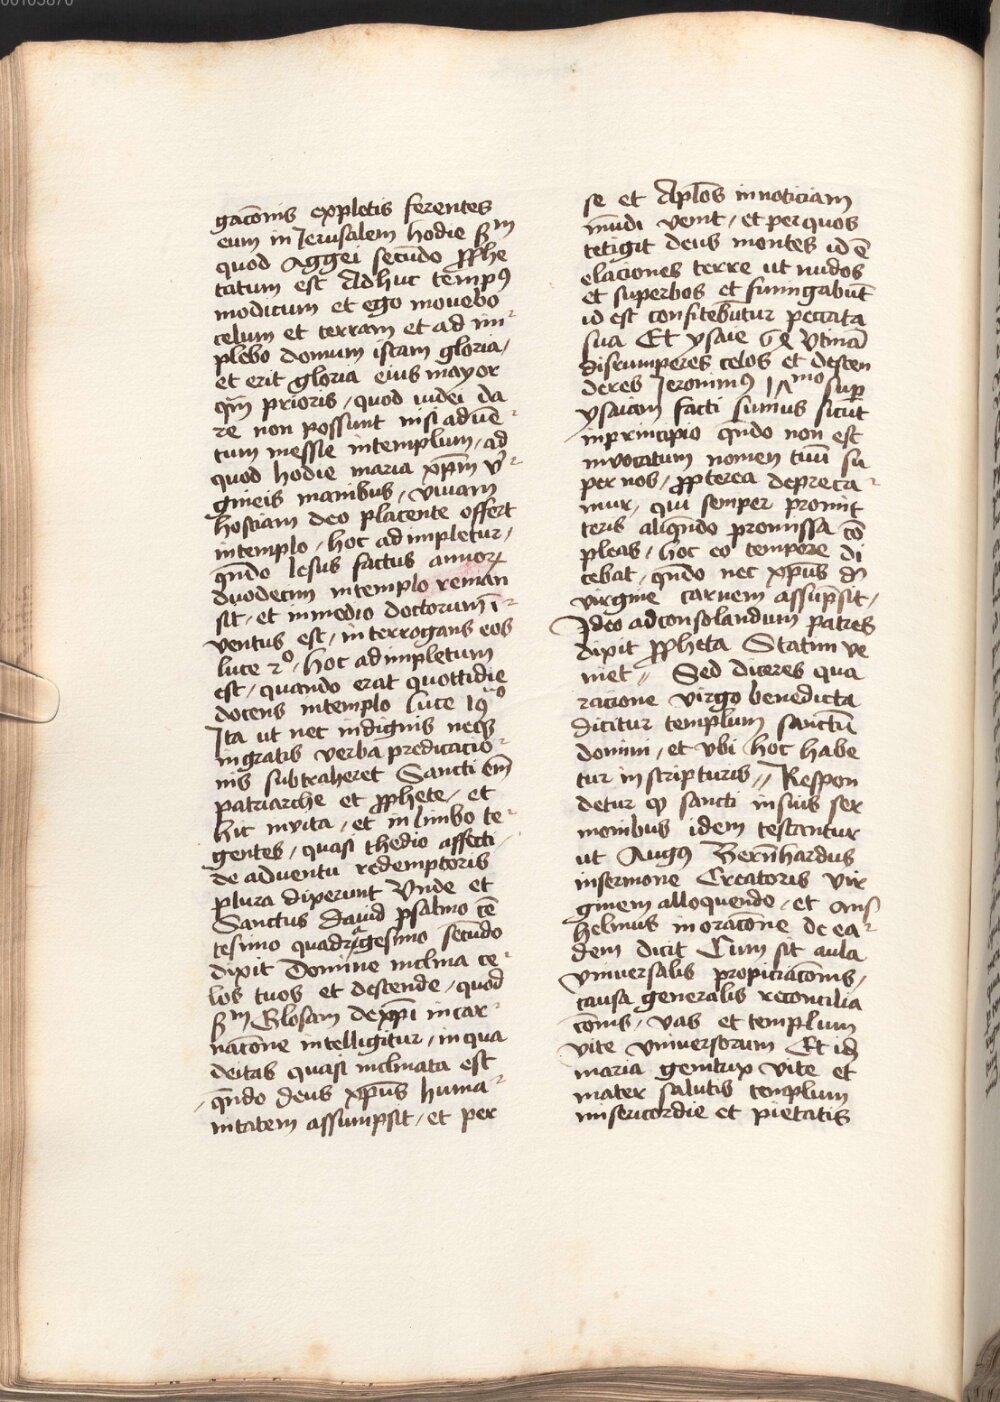 00105870
gac̄onis expletis ferentes
eum in Jerusalem hodie s̄m
quod Aggei secūdo ꝓphe
tatum est Adhuc tempꝰ
modicum et ego mouebo
celum et terram et ad im-
plebo domum istam gloria/
et erit gloria eius mayor
qm̄ prioris / quod iudei da
re non possunt nisi aduē-
tum messie intemplum / ad
quod hodie maria xp̄m v̓-
gineis manibus / viuam
hostiam deo placente offert
intemplo / hoc ad impletur /
qn̄do Iesus factus annoꝝ
duodecim intemplo reman
sit / et inmedio doctorum ī-
ventus est / interrogans eos
luce 2º / hoc ad impletum
est / quando erat quottidie
docens intemplo luce 19º
Ita ut nec indignis necꝫ
ingratis verba predicacio-
nis subtraheret Sancti em̄
patriarche et ꝓphete / et
hic invita / et in limbo te-
gentes / quasi thedio affecti /
de aduentu redemptoris
plura dixerunt Vnde et
Sanctus dauid psalmo cē
tesimo quadragesimo secūdo
dixit Domine inclina ce-
los tuos et descende / quod
s̄m Glosam de xp̄i incar-
nac̄one intelligitur / in qua
deitas quasi inclinata est
/ qn̄do deus xp̄us huma-
nitatem assumpsit / et per
se et Apl̄os innoticiam
mūdi venit / et per quos
tetigit deus montes id ē
elaciones terre ut nudos
et superbos et fumigabūt
id est confitebūtur peccata
sua Et ysaie 64 Vtinā
disrumperes celos et descen
deres Jeronimꝰ 17mo suꝑ
ysaiam facti sumus sicut
inprincipio qn̄do non est
invocatum nomen tuū su
per nos / ꝓpterea depreca-
mur / qui semper promit
teris aliqn̄do promissa cō
pleas / hoc eo tempore di
cebat / qn̄do nec xp̄us d̄
virgine carnem assūpsit /
Ideo adconsolandum patres
dixit ꝓpheta Statim ve
niet // Sed diceres qua
racione virgo benedicta
dicitur templum sanctū
domini / et vbi hoc habe
tur in scripturis // Respon
detur qꝫ sancti insuis ser
monibus idem testantur
ut Augꝰ Bern̄hardus
insermone Creatoris vir
ginem alloquendo / et Ans
helmus in orac̄one de ea-
dem dicit Cum sit aula
vniuersalis propiciac̄onis /
causa generalis reconcilia
c̄onis / vas et templum
vite vniuersorum Et idꝫ
maria genitrix vite et
mater salutis templum
misericordie et pietatis